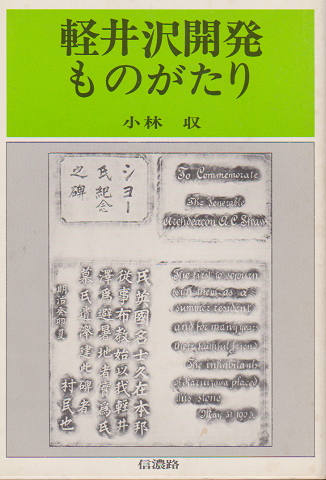 軽井沢開発
ものがたり
小林 収
ショー
氏紀念
之碑
To Commemorate
The Venerable
Archdeacon A C Shaw
氏英國名士久在本邦
従事布教始以我軽井
澤為避暑地者實為氏
慕氏遺澤建此碑者
村民也
明治癸卯夏
The first to sojourn
with them as a
summer resident
and for many years
their faithful friend
The inhabitants
of Karuizawa placed
this stone
May 31 1903
信濃路